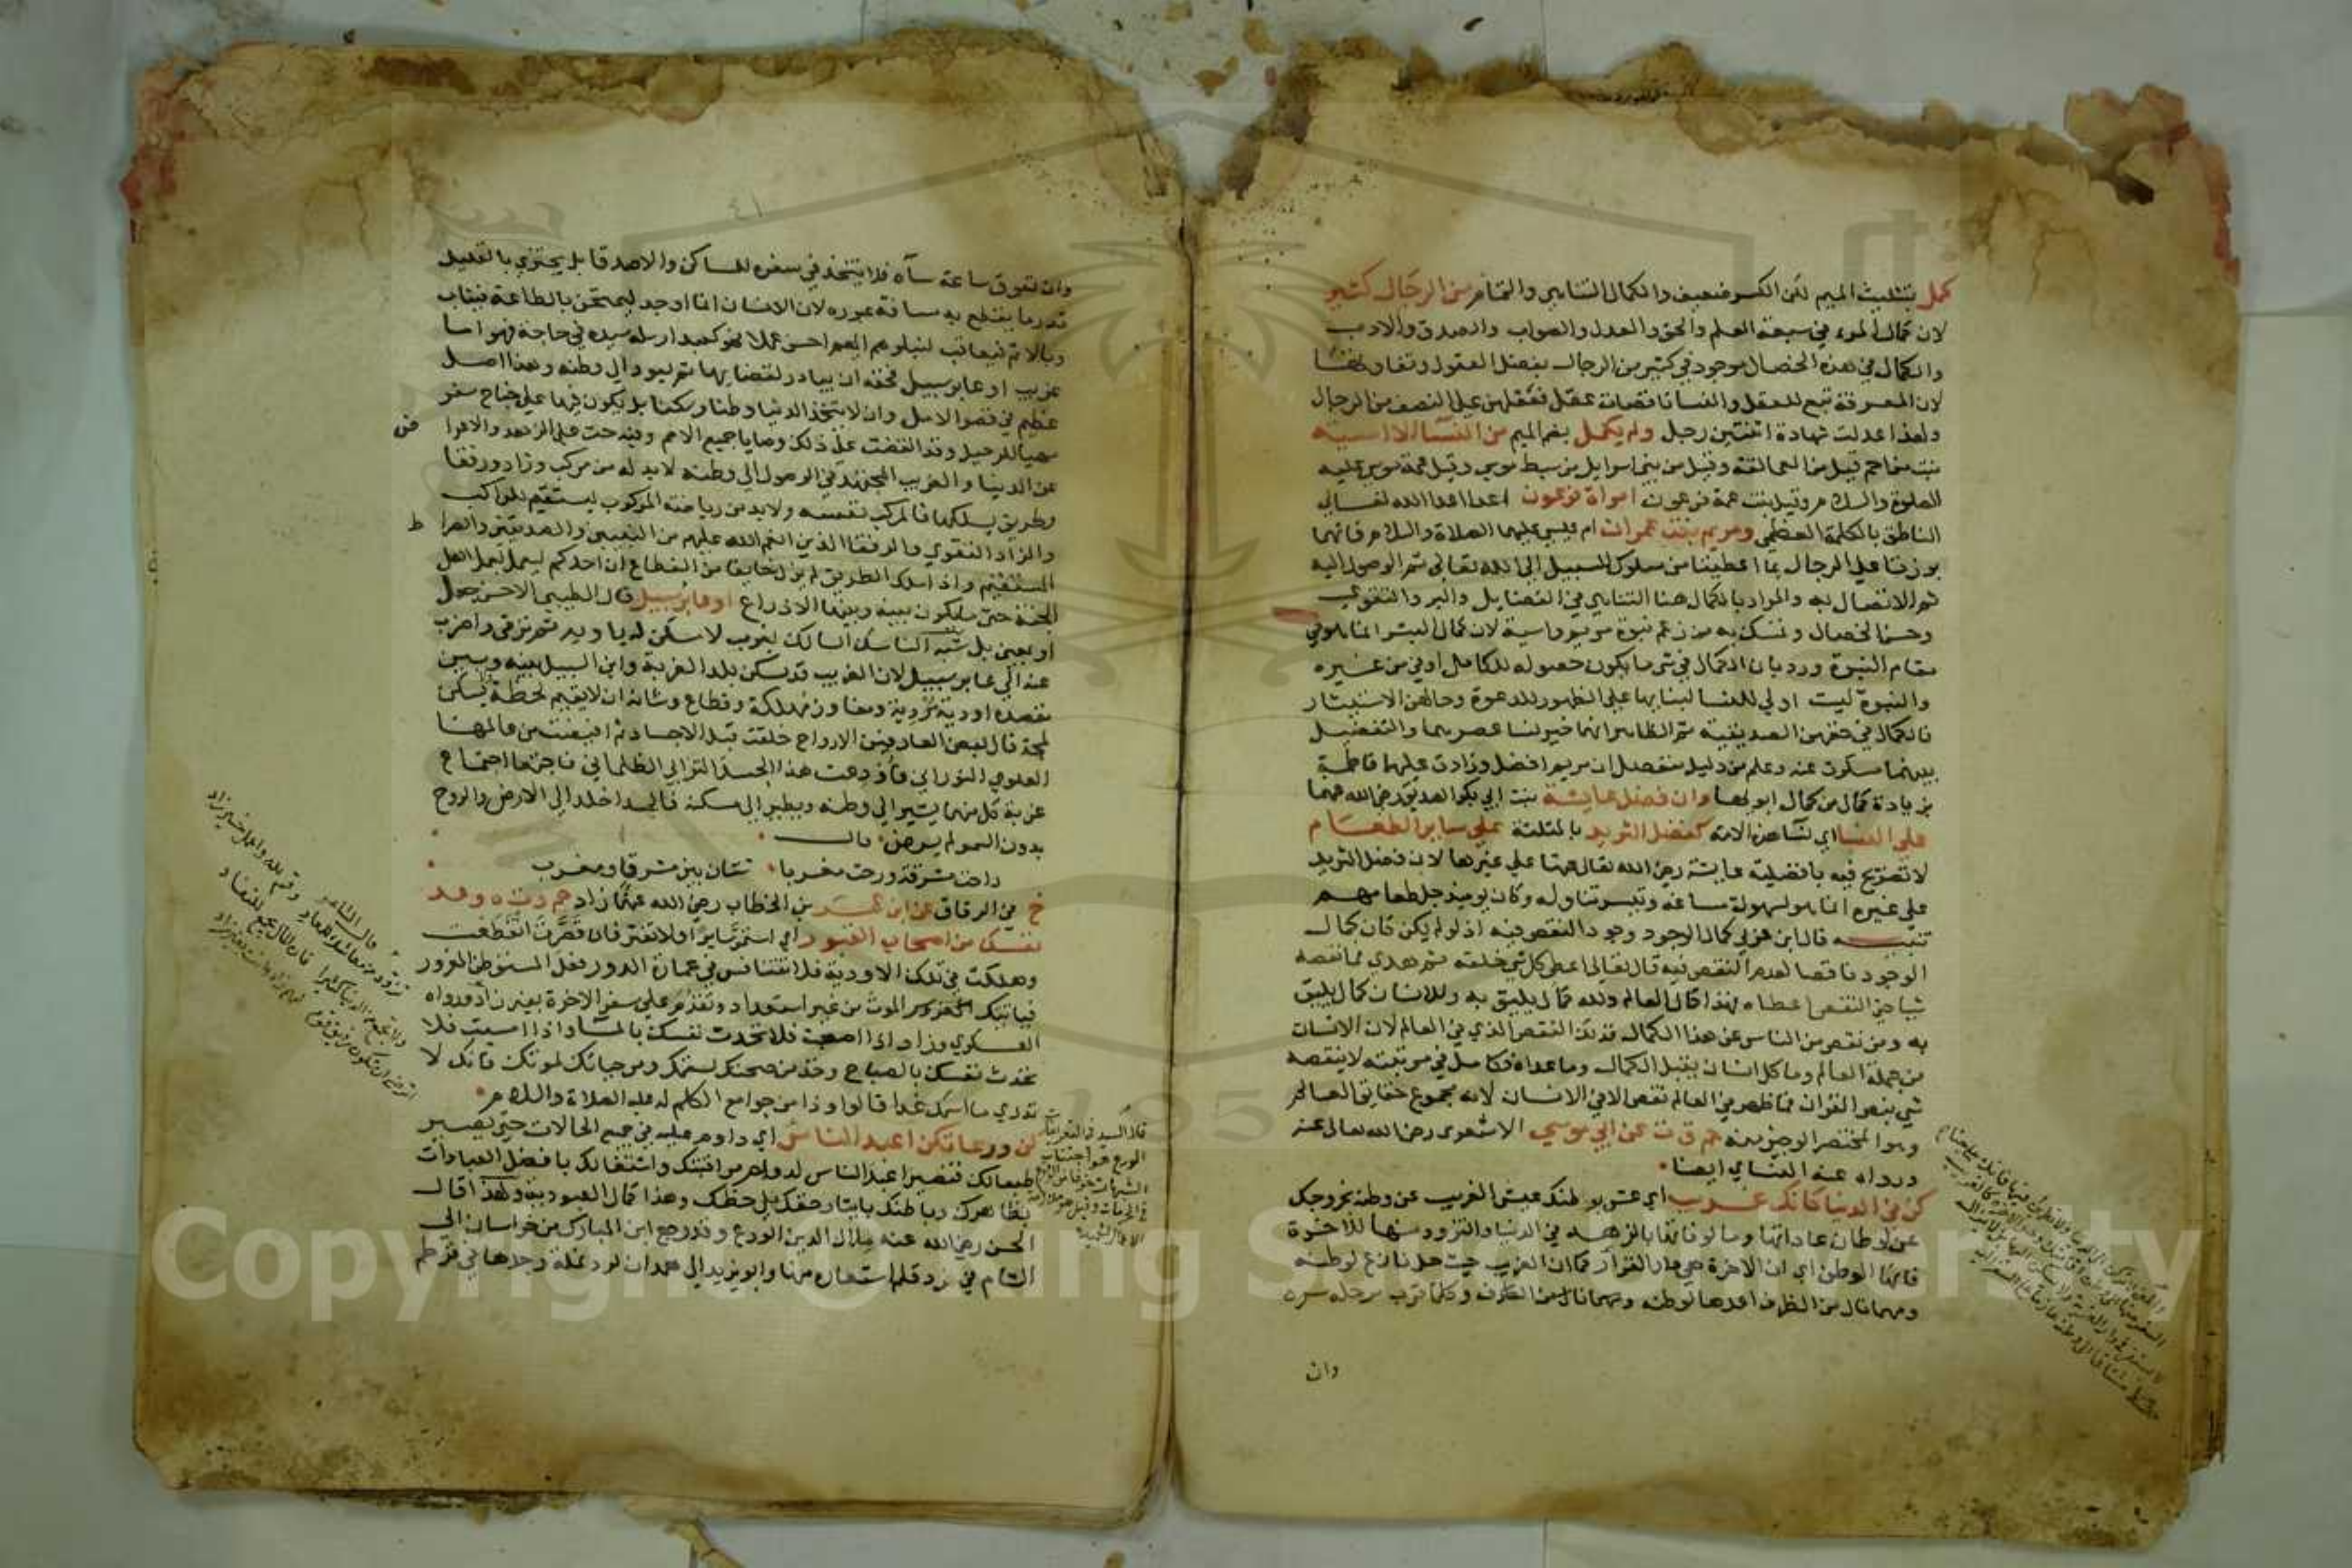 كمل بتثليث الميم لكن الكسر ضعيف والكمال التناهي والتمام من الرجال كثير
لان كمال المرء في سبعة العلم والحق والعدل والصواب والصدق والادب
والكمال في هذه الخصال موجود في كثير من الرجال بفضل العقول وتفاوتها
لان المعرفة تبع للعقل والنسا ناقصات عقل فعقلهن على النصف من الرجال
ولهذا عدلت شهادة اثنتين رجل ولم يكمل بضم الميم من النسا الا اسية
بنت مزاحم قيل من العمالقة وقيل من بني اسرايل من سبط موسى وقيل عمة موسى عليه
الصلوة والسلام وقيل بنت عمة فرعون امراة فرعون اعدا اعدا الله تعالى
الناطق بالكلمة العظمى ومريم بنت عمران ام عيسى عليهما الصلاة والسلام فانهما
برزتا على الرجال بما اعطيتا من سلوك السبيل الى الله تعالى ثم الوصول اليه
ثم الاتصال به والمراد بالكمال هنا التناهي في الفضايل والبر والتقوى
وحسن الخصال وتمسك به من زعم نبوة مريم واسية لان كمال البشر انما هو في
مقام النبوة ورد بان الكمال في شي ما يكون حصوله للكامل اولى من غيره
والنبوة ليست اولى للنسا لبنايها على الظهور للدعوة وحالهن الاستتار
فالكمال في حقهن الصديقية ثم الظاهر انهما خير نسا عصرهما والتفضيل
بينهما مسكوت عنه وعلم من دليل منفصل ان مريم افضل وزادت عليهما فاطمة
بزيادة كمال من كمال ابويها وان فضل عايشة بنت ابي بكر الصديق رضي الله عنهما
على النسا اي نسا هذه الامة كفضل الثريد بالمثلثة على ساير الطعام
لا تصريح فيه بافضلية عايشة رضي الله تعالى عنها على غيرها لان فضل الثريد
على غيره انما هو لسهولة مساغه وتيسر تناوله وكان يوميذ جل طعامهم
تنبيه قال ابن عربي كمال الوجود وجود النقص فيه اذ لو لم يكن كان كمال
الوجود ناقصا لعدم النقص فيه قال تعالى اعطى كل شي خلقه ثم هدى فما نقصه
شيا حتى النقص اعطاه فهذا كمال العالم ولله كمال يليق به وللانسان كمال يليق
به ومن نقص من الناس عن هذا الكمال فذلك النقص الذي في العالم لان الانسان
من جملة العالم وما كل انسان يقبل الكمال وما عداه فكامل في مرتبته لا ينقصه
شي بنص القران فما ظهر في العالم نقص الا في الانسان لانه مجموع حقايق العالم
وهو المختصر الوجيز حم ق ت عن ابي موسى الاشعري رضي الله تعالى عنه
ورواه عنه النسائي ايضا
كن في الدنيا كانك غريب اي عش بوطنك عيش الغريب عن وطنه بخروجك
عن اوطان عاداتها ومالوفاتها بالزهد في الدنيا والتزود منها للاخرة
فانها الوطن اي ان الاخرة هي دار القرار كما ان الغريب حيث حل نازع لوطنه
ومهما نال من الطرف اعدها لوطنه وكلما قرب مرحلة سره
وان
وان تعوق ساعة ساه فلا يتخذ في سفره المساكن والاصدقا بل يجتزي بالقليل
قدر ما يقطع به مسافة عبوره لان الانسان انما اوجد ليمتحن بالطاعة فيثاب
وبالاثم فيعاقب ليبلوهم ايهم احسن عملا فهو كعبد ارسله سيده في حاجة فهو اما
غريب او عابر سبيل فحقه ان يبادر لقضايها ثم يعود الى وطنه وهذا اصل
عظيم في قصر الامل وان لا يتخذ الدنيا وطنا وسكنا بل يكون فيها على جناح سفر
مهيا للرحيل وقد اتفقت على ذلك وصايا جميع الامم وفيه حث على الزهد والاعرا
ض
عن الدنيا والغريب المجتهد في الوصول الى وطنه لابد له من مركب وزاد ورفقا
وطريق يسلكها فالمركب نفسه ولابد من رياضة المركوب ليستقيم للراكب
والزاد التقوى والرفقا الذين انعم الله عليهم من النبيين والصديقين والصرا
ط
المستقيم واذا سلك الطريق لم يزل خايفا من القطاع ان احدكم ليعمل بعمل اهل
الجنة حتى ما يكون بينه وبينها الا ذراع او عابر سبيل قال الطيبي الاحسن جعل
او بمعنى بل شبه الناسك السالك بغريب لا سكن له ياويه ثم ترقى واضرب
عنه الى عابر سبيل لان الغريب قد يسكن بلد الغربة وابن السبيل بينه وبين
مقصده اودية مردية ومفاوز مهلكة وقطاع وشانه ان لا يقيم لحظة ولا يسكن
لمحة قال بعض العارفين الارواح خلقت قبل الاجساد ثم افيضت من عالمها
العلوي النوراني فاودعت هذا الجسد الترابي الظلماني فاجتمعا اجتماع
غربة كل منهما يشير الى وطنه ويطير الى سكنه فالجسد اخلد الى الارض والروح
بدون السمو لم يرض قال
راحت مشرقة ورحت مغربا شتان بين مشرق ومغرب
خ في الرقاق عن ابن عمر بن الخطاب رضي الله عنهما زاد حم ت ه وعد
نفسك من اصحاب القبور اي استمر سايرا ولا تفتر فان قصرت انقطعت
وهلكت في تلك الاودية فلا تتنافس في عمارة الدور فعل المستوطن المغرور
فياتيك الموت من غير استعداد وتقدم على سفر الاخرة بغير زاد ورواه
العسكري وزاد اذا اصبحت فلا تحدث نفسك بالمسا واذا امسيت فلا
تحدث نفسك بالصباح وخذ من صحتك لسقمك ومن حياتك لموتك فانك لا
تدري ما اسمك غدا قالوا وذا من جوامع الكلم له عليه الصلاة والسلام
كن ورعا تكن اعبد الناس اي داوم عليه في جميع الحالات حتى يصير
طبعا لك فتصير اعبد الناس لدوام مراقبتك واشتغالك بافضل العبادات
بظاهرك وباطنك بايثار حقك على حظك وهذا كمال العبودية ولهذا قال
الحسن رضي الله عنه ملاك الدين الورع وقد رجع ابن المبارك من خراسان الى
الشام في رد قلم استعاره منها وابو يزيد الى همدان لرد نملة وجدها في قرطم
قال السيد في التعريفات
الورع هو اجتناب
الشبهات خوفا من الوقوع
في المحرمات وقيل هو ملازمة
الاعمال الجميلة
قال الشاعر